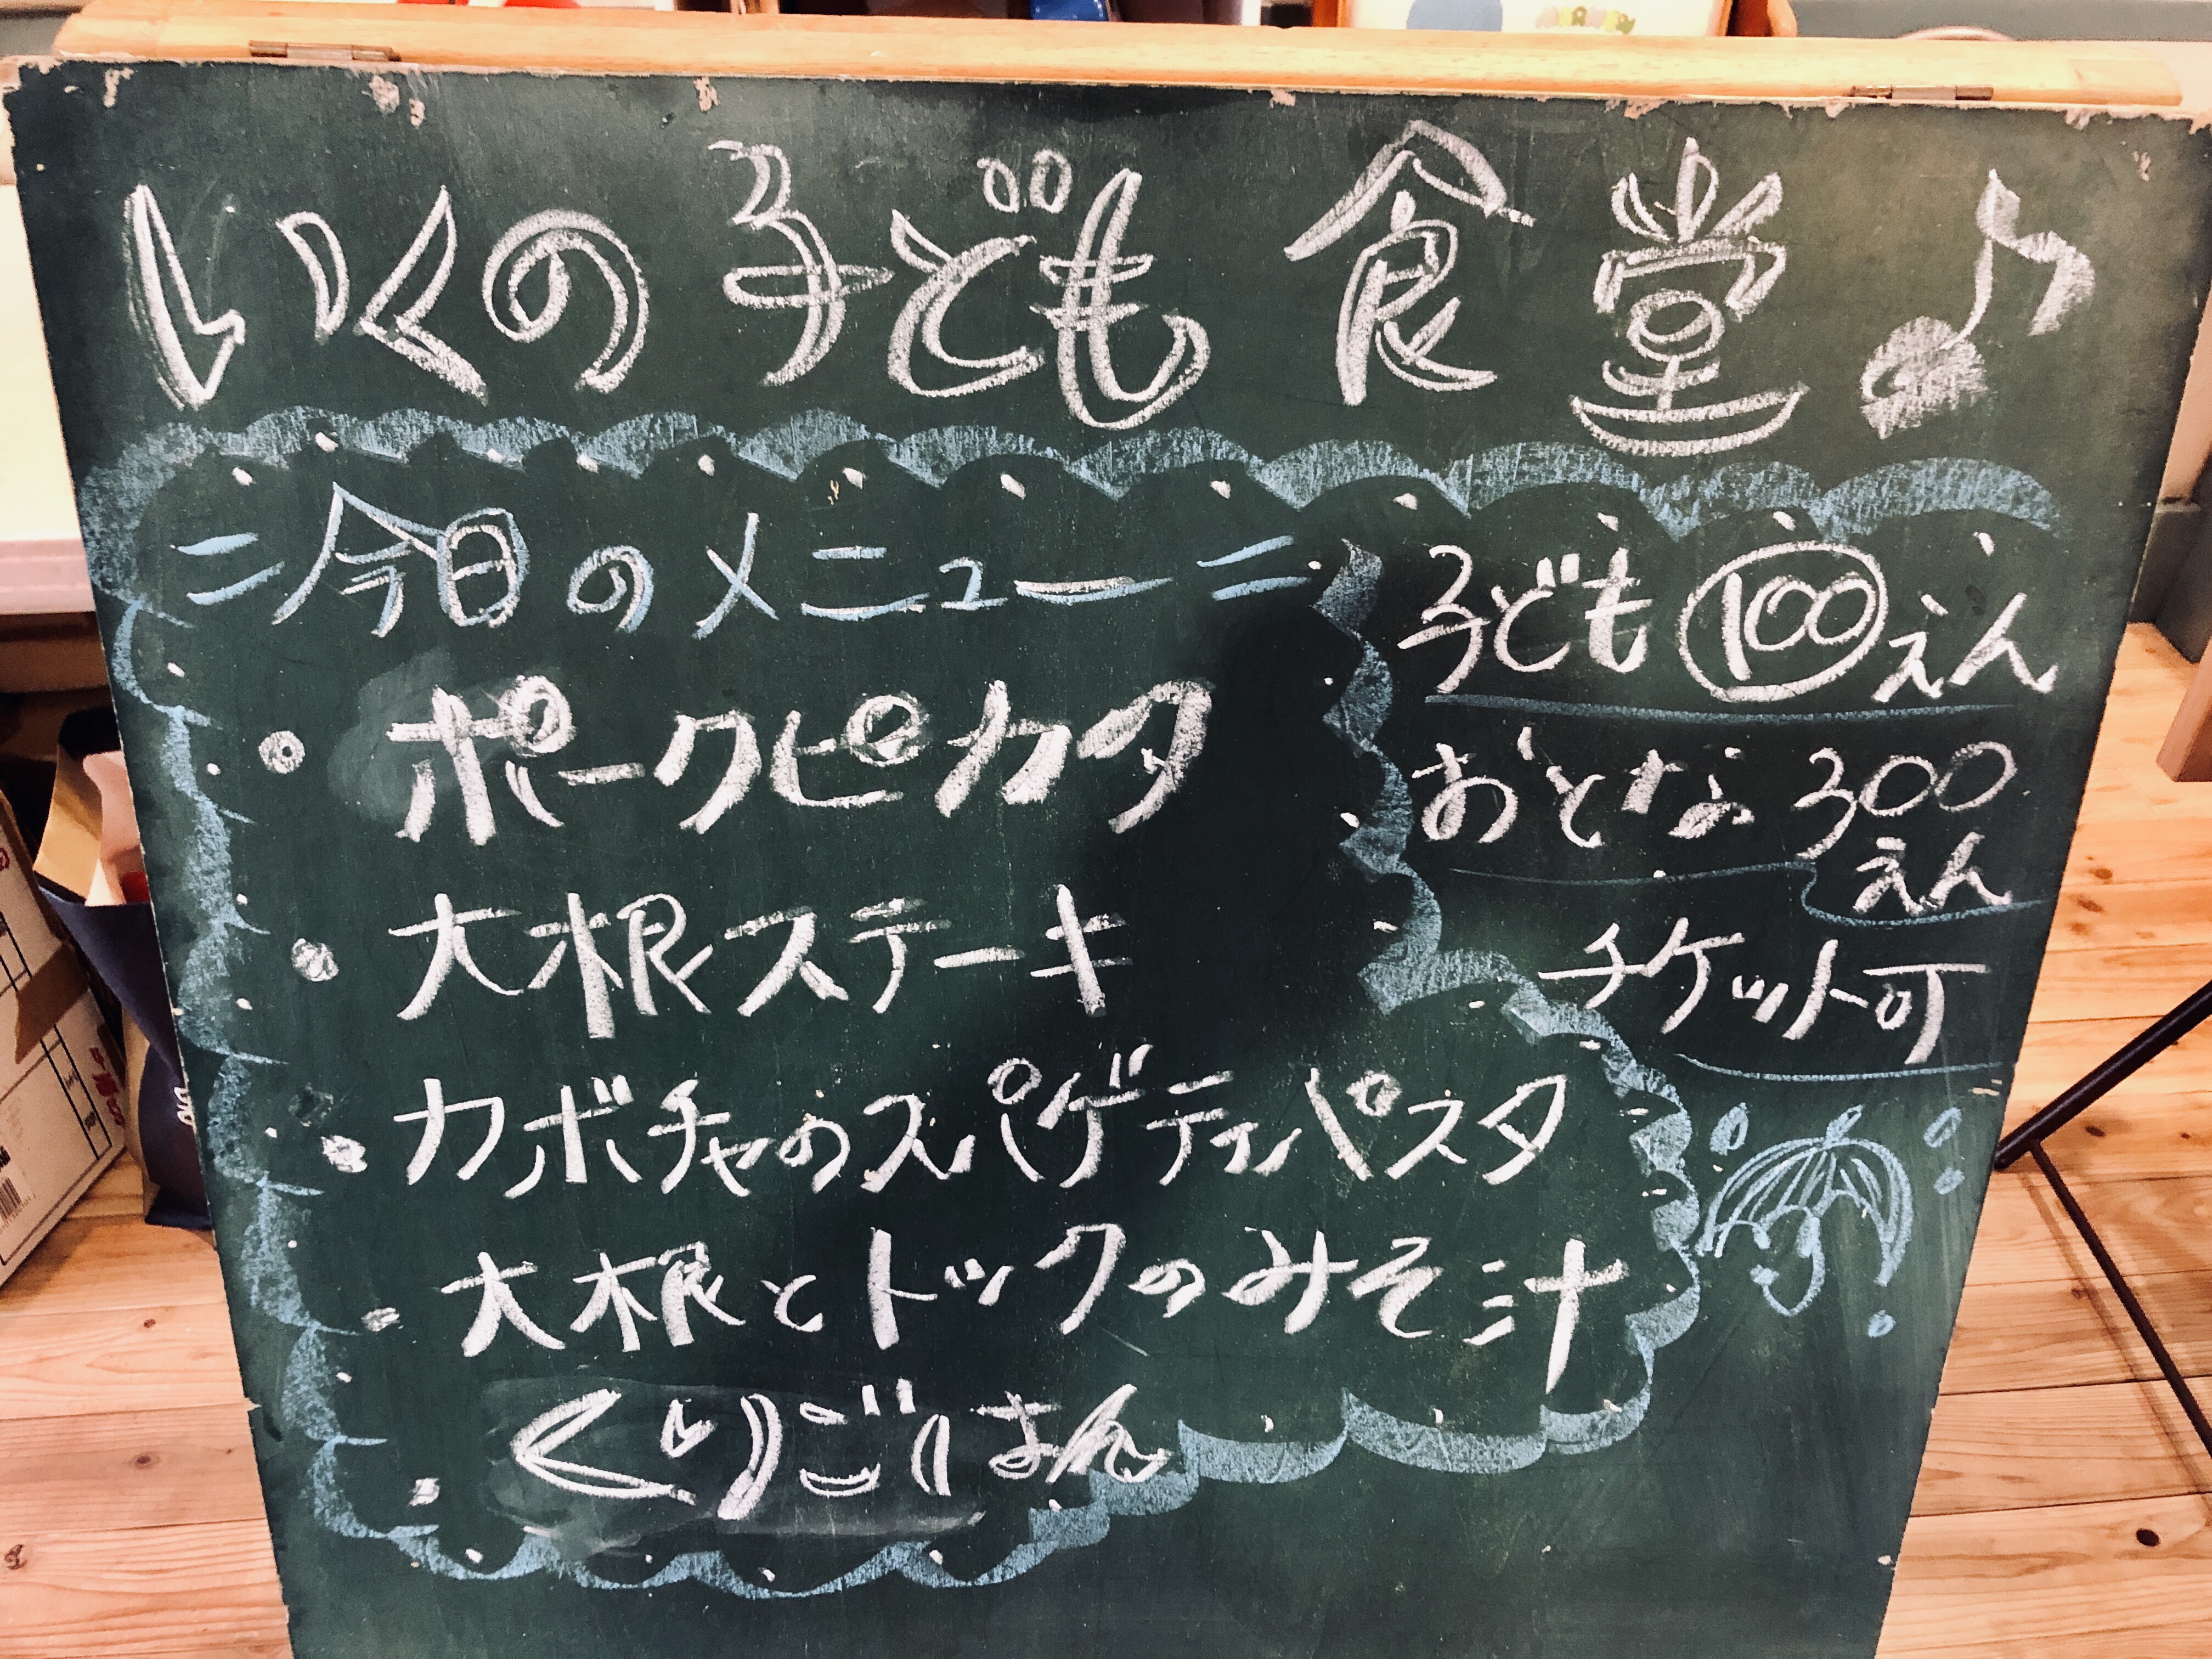 いくの子ども食堂♪
=今日のメニュー=
・ポークピカタ
・大根ステーキ
・カボチャのスパゲティパスタ
・大根とトックのみそ汁
・くりごはん
子ども100えん
おとな300
えん
チケット可